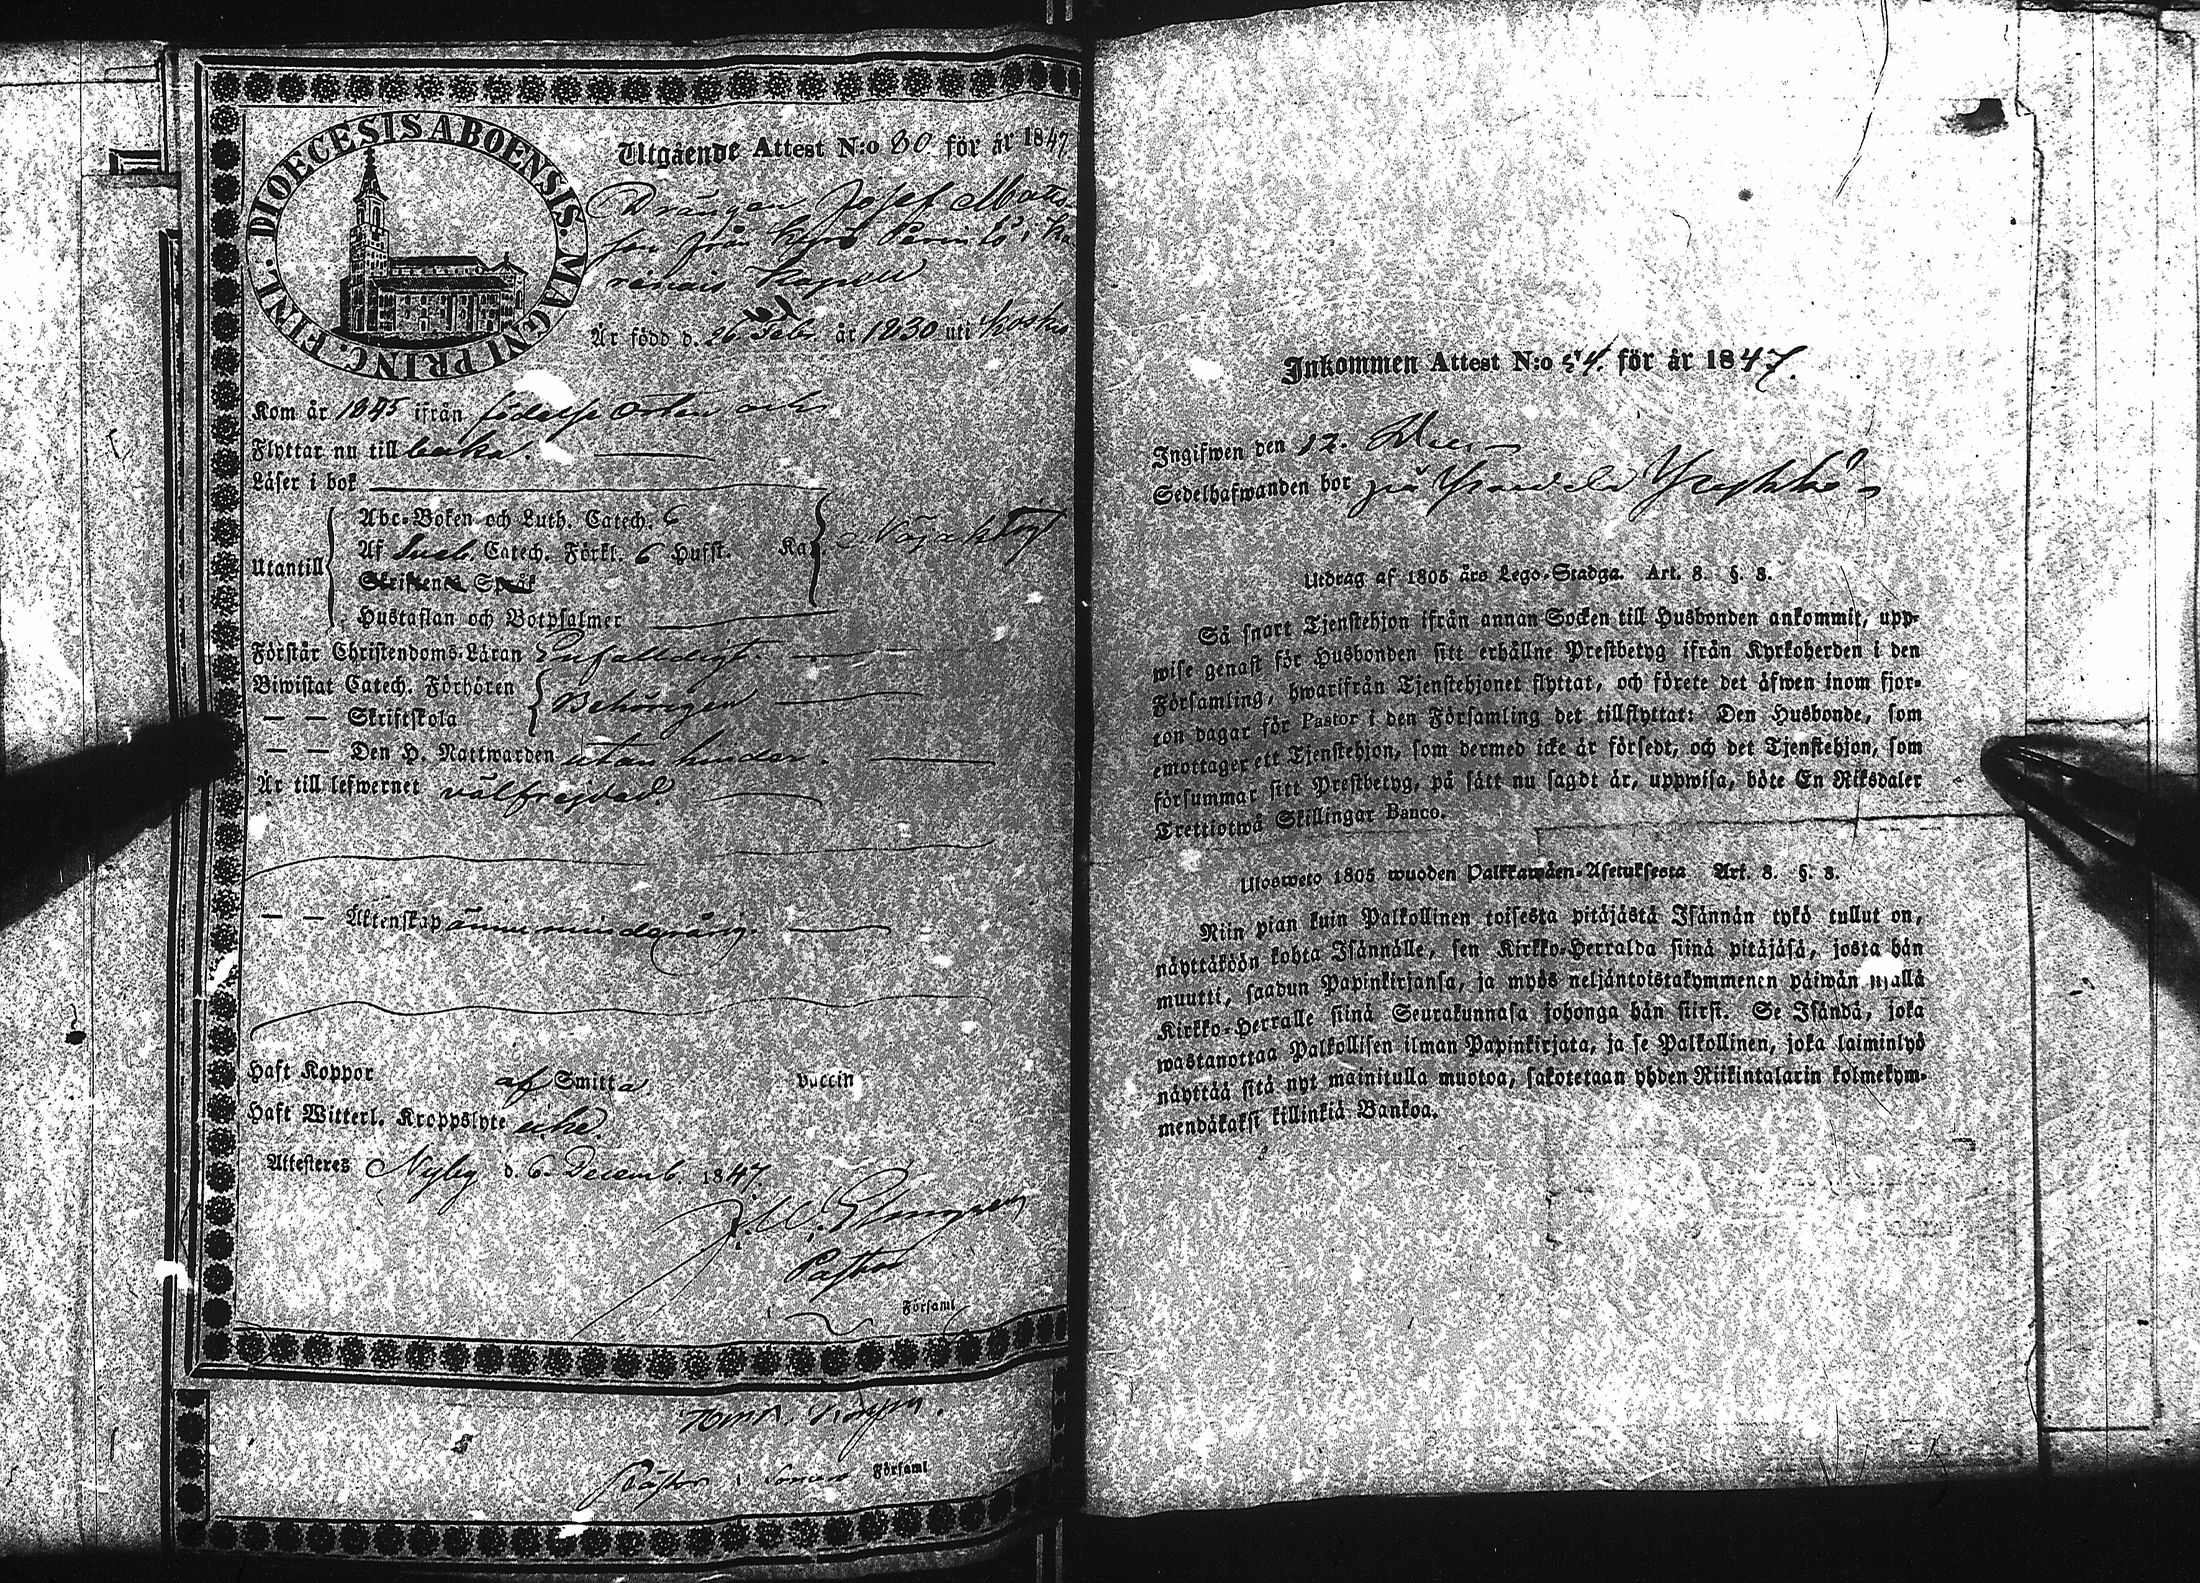 DIOECESIS ABOENSIS. MAGNI PRINC. FINL.
Utgående Attest N:o 30 för år 1847
Drängen Josef Mats
son från Kyrö i
Kapell
Är född d. 26 Febr. år 1830 uti Koskis
Kom år 1845 ifrån födelse orten och
Flyttar nu till baka.
Läser i bok
Utantill
Abc-Boken och Luth. Catech. 6
Af Sveb. Catech. Förkl. 6 Hufst.
Skriftens Språk
Hustaflan och Botpsalmer
Kan Nöjaktigt
Förstår Christendoms-Läran Enfalldigt.
Biwistat Catech. Förhören
— — Skriftskola
Behörigen
— — Den H. Nattwarden utan hinder.
Är till lefwernet välfrejdad.
— — Äktenskap ännu minderårig.
Haft Koppor af Smitta. Vaccin
Haft Witterl. Kroppslyte icke.
Attesteres Nyby d. 6. Decemb. 1847
Pastor
Församl
Pastor i Somero Församl
Inkommen Attest N:o 54. för år 1847.
Ingifwen den 12. Dec.
Sedelhafwanden bor på
Utdrag af 1805 års Lego-Stadga. Art. 8. §. 3.
Så snart Tjenstehjon ifrån annan Socken till Husbonden ankommit, upp-
wise genast för Husbonden sitt erhållne Prestbetyg ifrån Kyrkoherden i den
Församling, hwarifrån Tjenstehjonet flyttat, och förete det äfwen inom fjor-
ton dagar för Pastor i den Församling det tillflyttat: Den Husbonde, som
emottager ett Tjenstehjon, som dermed icke är försedt, och det Tjenstehjon, som
försummar sitt Prestbetyg, på sätt nu sagdt är, uppwisa, böte En Riksdaler
Trettiotwå Skillingar Banco.
Ulosweto 1805 wuoden Palkkawäen-Asetuksesta Art. 8. §. 3.
Niin pian kuin Palkollinen toisesta pitäjästä Isännän tykö tullut on,
näyttäköön kohta Isännälle, sen Kirkko-Herralda siinä pitäjäsä, josta hän
muutti, saadun Papinkirjansa, ja myös neljäntoistakymmenen päiwän sisällä
Kirkko-Herralle siinä Seurakunnasa johonga hän siirsi. Se Isändä, joka
wastanottaa Palkollisen ilman Papinkirjata, ja se Palkollinen, joka laiminlyö
näyttää sitä nyt mainitulla muotoa, sakotetaan yhden Riikintalarin kolmekym-
mendäkaksi killinkiä Bankoa.